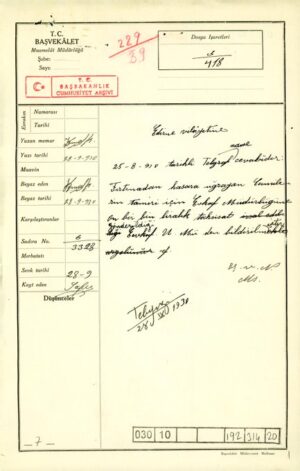 T. C.
BAŞVEKÂLET
Muamelât Müdürlüğü
Şube:
Sayı:
229
39
Dosya İşaretleri
418
T. C.
BAŞBAKANLIK
CUMHURİYET ARŞİVİ
Evrakın
Numarası
Tarihi
Yazan memur
Yazı tarihi
28-9-930
Muavin
Beyaz eden
Beyaz tarihi
28-9-930
Karşılaştıranlar
Sadıra No.
6
3328
Merbutatı
Sevk tarihi
28-9
Kayt eden
Düşünceler
Edirne vilâyetine
25-8-930 tarihli Telgraf cevabıdır:
Fırtınadan hasara uğrayan Camile-
rin tamiri için Evkaf Müdürlüğüne
on bir bin liralık tahsisat
Evkaf U. Mü. den bildirilmekle
ef.
28 1930
- 7 -
030 10
192 314 20
Başvekâlet Müdevvenat Matbaası